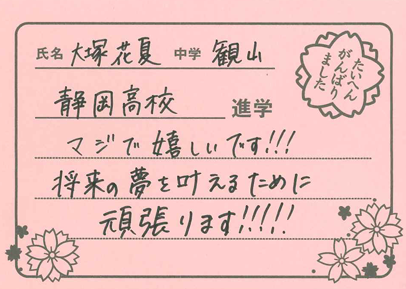 氏名 大塚花夏 中学 観山
たいへん
がんばり
ました
静岡高校 進学
マジで嬉しいです!!!
将来の夢を叶えるために
頑張ります!!!!!